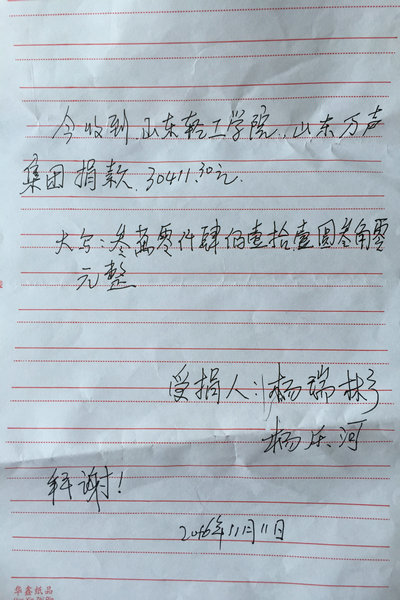 今收到山东轻工学院、山东万声
集团捐款.30411.30元.
大写:叁萬零仟肆佰壹拾壹圆叁角零
元整
受捐人:杨瑞彬
杨乐河
拜谢!
2016年11月11日
华鑫纸品
Hua Xin Zhi Pin